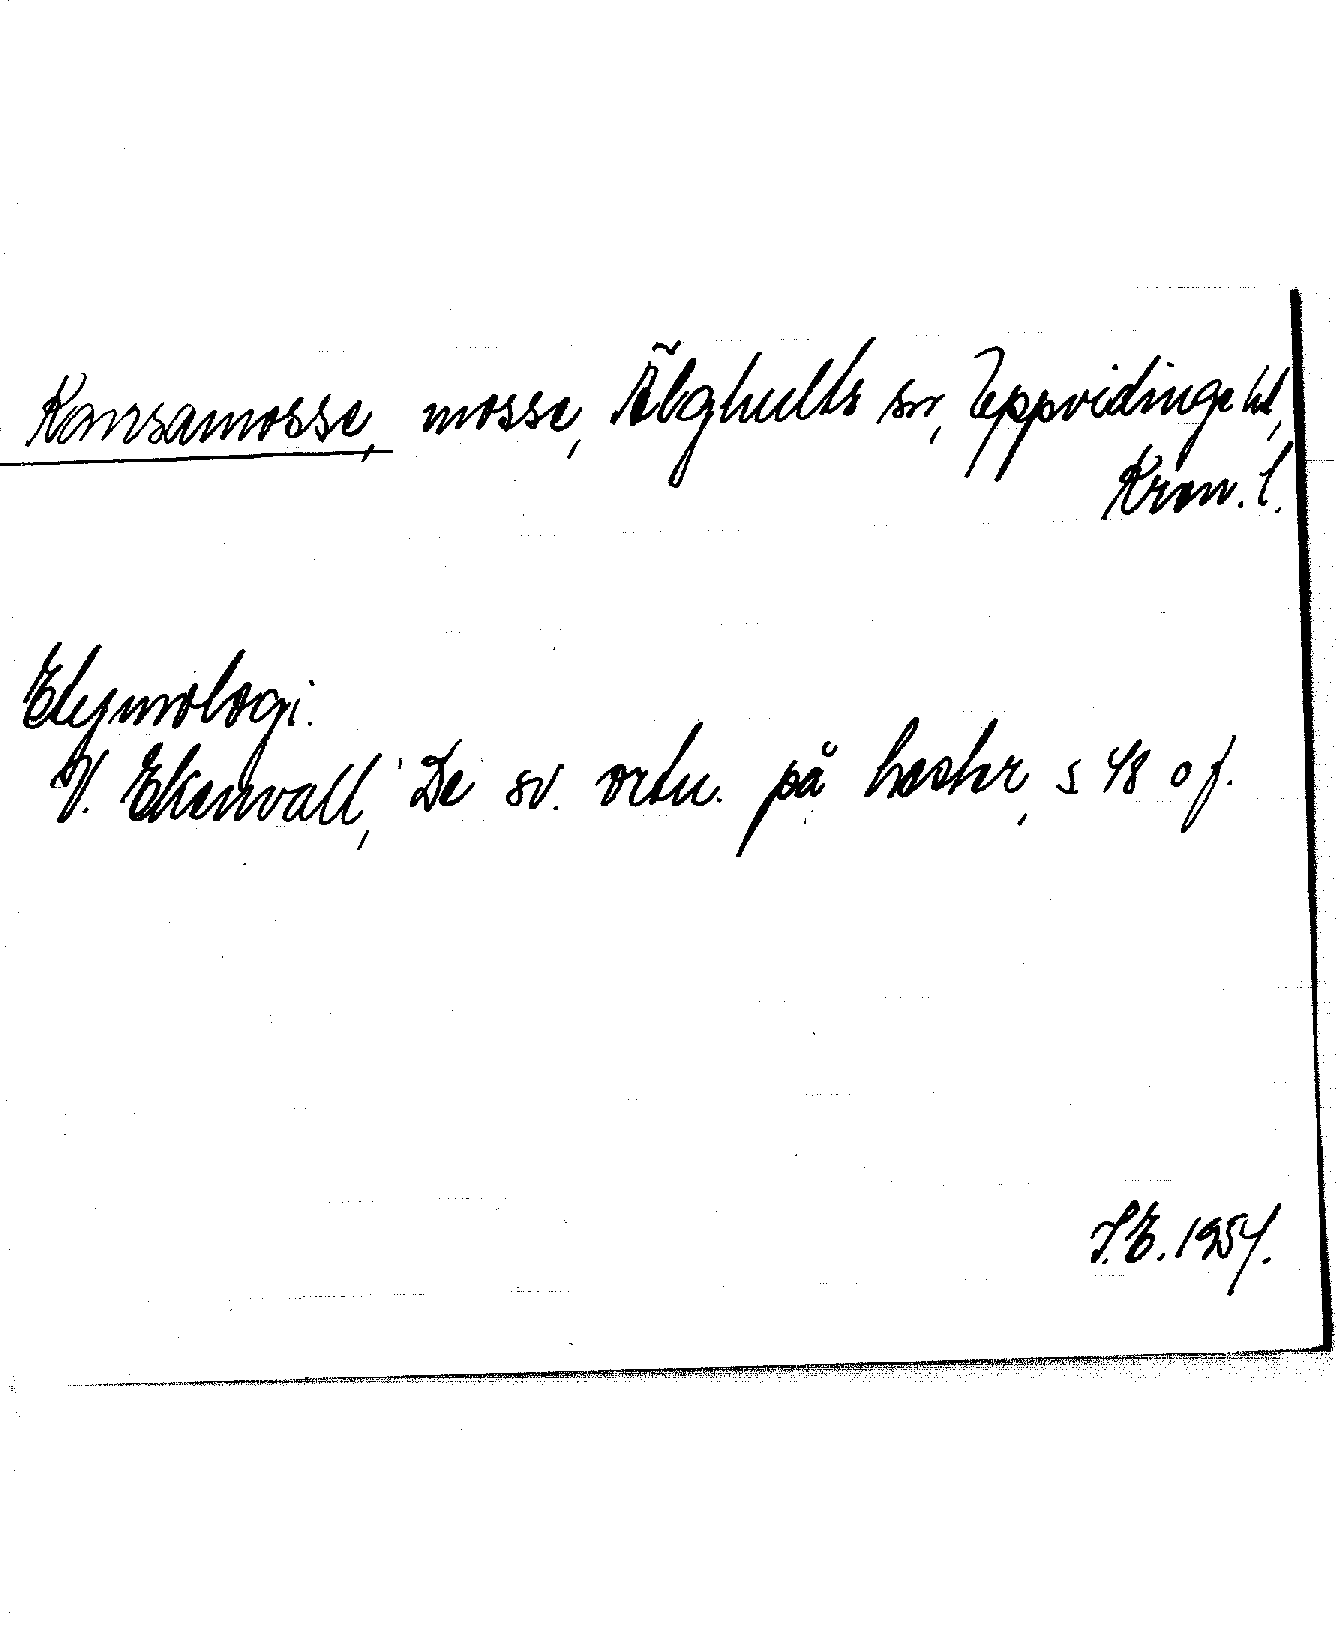 Konsamosse, mosse, Älghults sn, Uppvidinge hd,
Kron. l.
Etymologi.
V. Ekenvall, De sv. ortn. på hester, s 48 o f.
I.E. 1954.